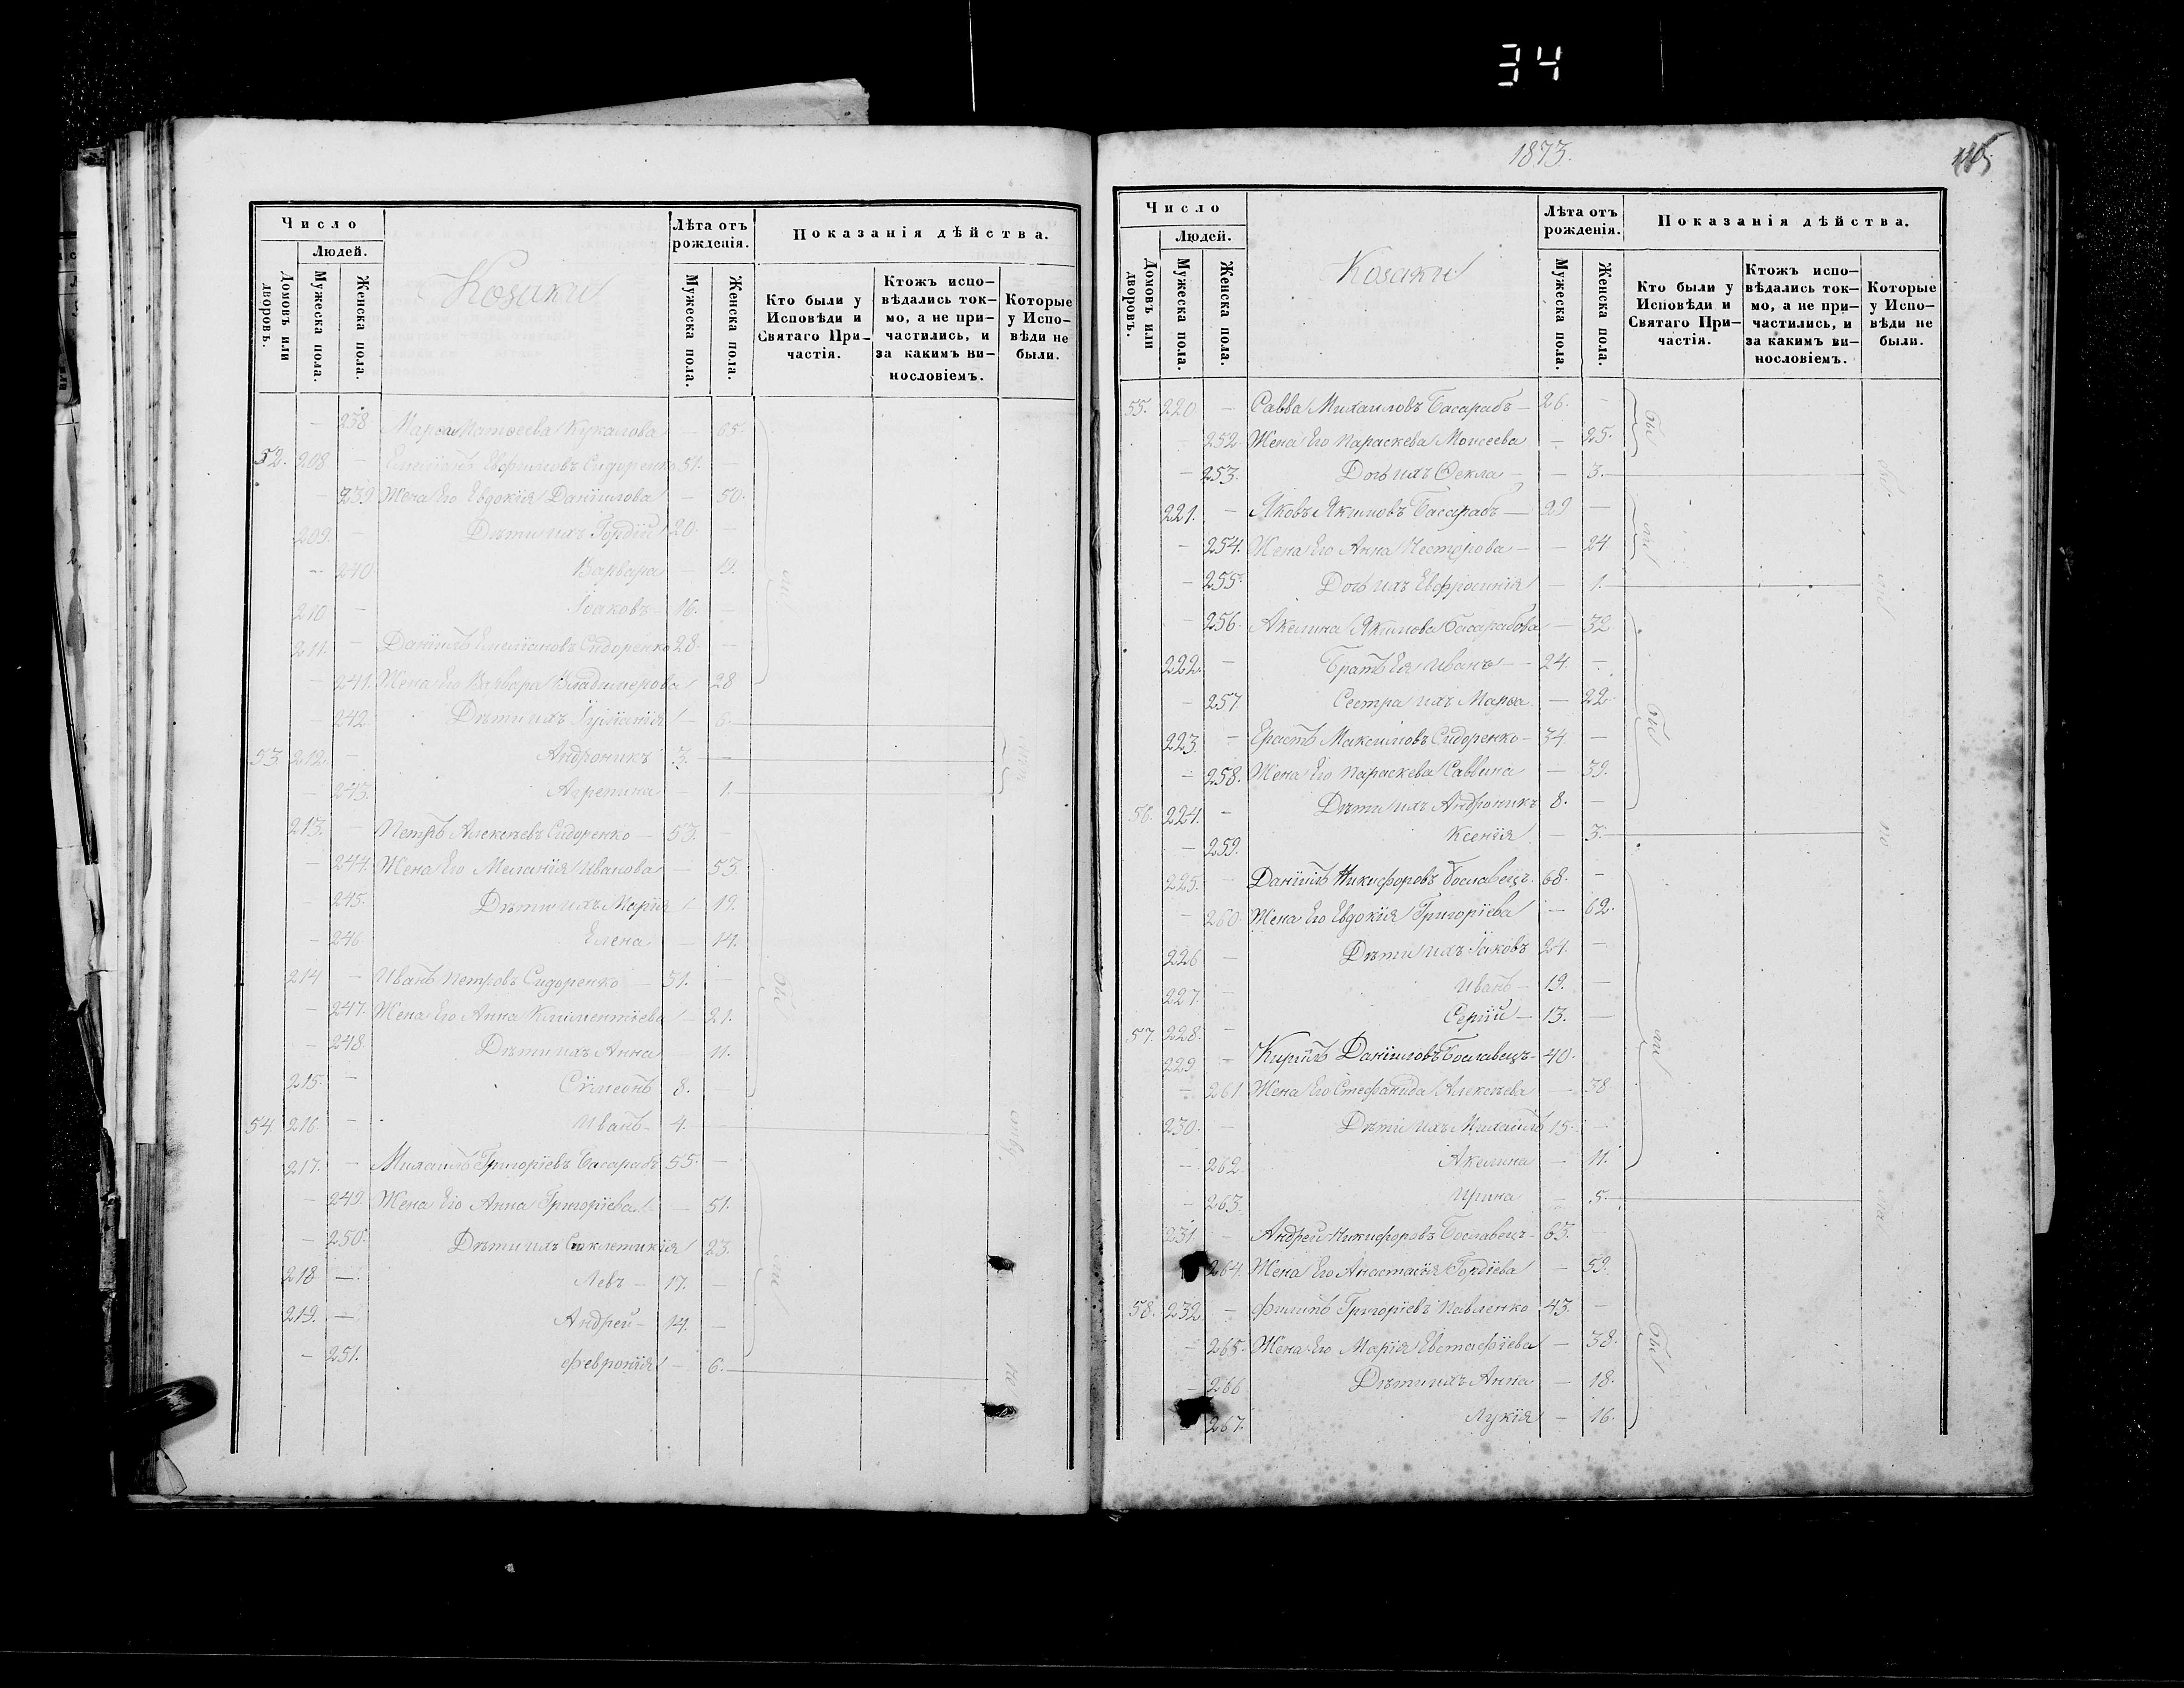 34
Число
Людей.
Домовъ или дворовъ.
Мужеска пола.
Женска пола.
Козаки
Лѣта отъ рожденія.
Мужеска пола.
Женска пола.
Показанія дѣйства.
Кто были у Исповѣди и Святаго Причастія.
Ктожъ исповѣдались токмо, а не причастились, и за какимъ винословіемъ.
Которые у Исповѣди не были.
— 238 Марѳа Матѳеева — 65.
52. 208 — Емеліанъ Евфимовъ Сидоренко 51. —
— 239. Жена Его Евдокія Даніилова — 50.
209. — Дѣти ихъ Гордій 20. —
— 240 Варвара — 19.
210 — Іаковъ — 16. —
211. — Даніилъ Емеліановъ Сидоренко 28. —
— 241. Жена Его Варвара Владимерова 28
— 242 Дѣти ихъ Іуліанія — 6.
53 212. — Андроникъ 3. —
— 243. Агрепина — 1.
213. — Петръ Алексѣевъ Сидоренко — 53. —
— 244. Жена Его Меланія Иванова — 53.
— 245. Дѣти ихъ Марія 19.
— 246. Елена — 14.
214 — Иванъ Петровъ Сидоренко — 31. —
— 247. Жена Его Анна Климентіева — 21.
— 248. Дѣти ихъ Анна 11.
215. — Сѵмеонъ 8. —
54 216. — Иванъ — 4. —
217. — Михаилъ Григоріевъ Басарабъ 55. —
— 249. Жена Его Анна Григоріева — 51.
— 250. Дѣти ихъ Синклетикія 23.
218 — Левъ — 17. —
219. — Андрей — 14. —
— 251. Февронія — 6.
1873.
115
Число
Людей.
Домовъ или дворовъ.
Мужеска пола.
Женска пола.
Козаки
Лѣта отъ рожденія.
Мужеска пола.
Женска пола.
Показанія дѣйства.
Кто были у Исповѣди и Святаго Причастія.
Ктожъ исповѣдались токмо, а не причастились, и за какимъ винословіемъ.
Которые у Исповѣди не были.
55. 220 — Савва Михаиловъ Басарабъ — 26. —
— 252. Жена Его Параскева Моисеева — 25.
— 253. Дочь ихъ Ѳекла — 3.
221. — Яковъ Якимовъ Басарабъ — 29 —
— 254. Жена Его Анна Несторова — 24
— 255. Дочь ихъ Евфросинія — 1.
— 256. Акелина Якимова Басарабова — 32
222. — Братъ Ея Иванъ — 24. —
— 257 Сестра ихъ Марѳа — 22.
223 — Ерастъ Максимовъ Сидоренко — 34 —
— 258. Жена Его Параскева Саввина — 39.
56. 224. — Дѣти ихъ Андроникъ 8. —
— 259. Ксенія — 3.
225. — Даніилъ Никифоровъ Бославецъ. 68. —
— 260. Жена Его Евдокія Григоріева — 62.
226 — Дѣти ихъ Іаковъ 24. —
227. — Иванъ — 19. —
57. 228. — Сергій — 13. —
229. — Кирилъ Даніиловъ Бославецъ — 40.
— 261 Жена Его Стефанида Алексѣева — 38
230. — Дѣти ихъ Михаилъ 15. —
— 262. Акелина — 11.
— 263. Ирина — 5.
231 — Андрей Никифоровъ Бославецъ — 63. —
264. Жена Его Анастасія Гордіева — 59.
58. 232 — Филипъ Григоріевъ Павленко 43. —
— 265. Жена Его Марія Евстафіева — 38.
— 266 Дѣти ихъ Анна — 18.
267. Лукія — 16.